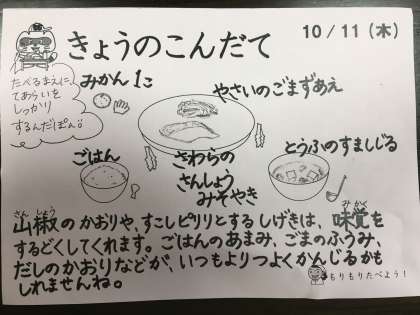 きょうのこんだて
10/11(木)
たべるまえに、
てあらいを
しっかり
するんだぽん。
みかん1こ
やさいのごまずあえ
ごはん
さわらの
さんしょう
みそやき
とうふのすましじる
さんしょう
みかく
山椒のかおりや、すこしピリリとするしげきは、味覚を
するどくしてくれます。ごはんのあまみ、ごまのふうみ、
だしのかおりなどが、いつもよりつよくかんじるかも
しれませんね。
もりもりたべよう!